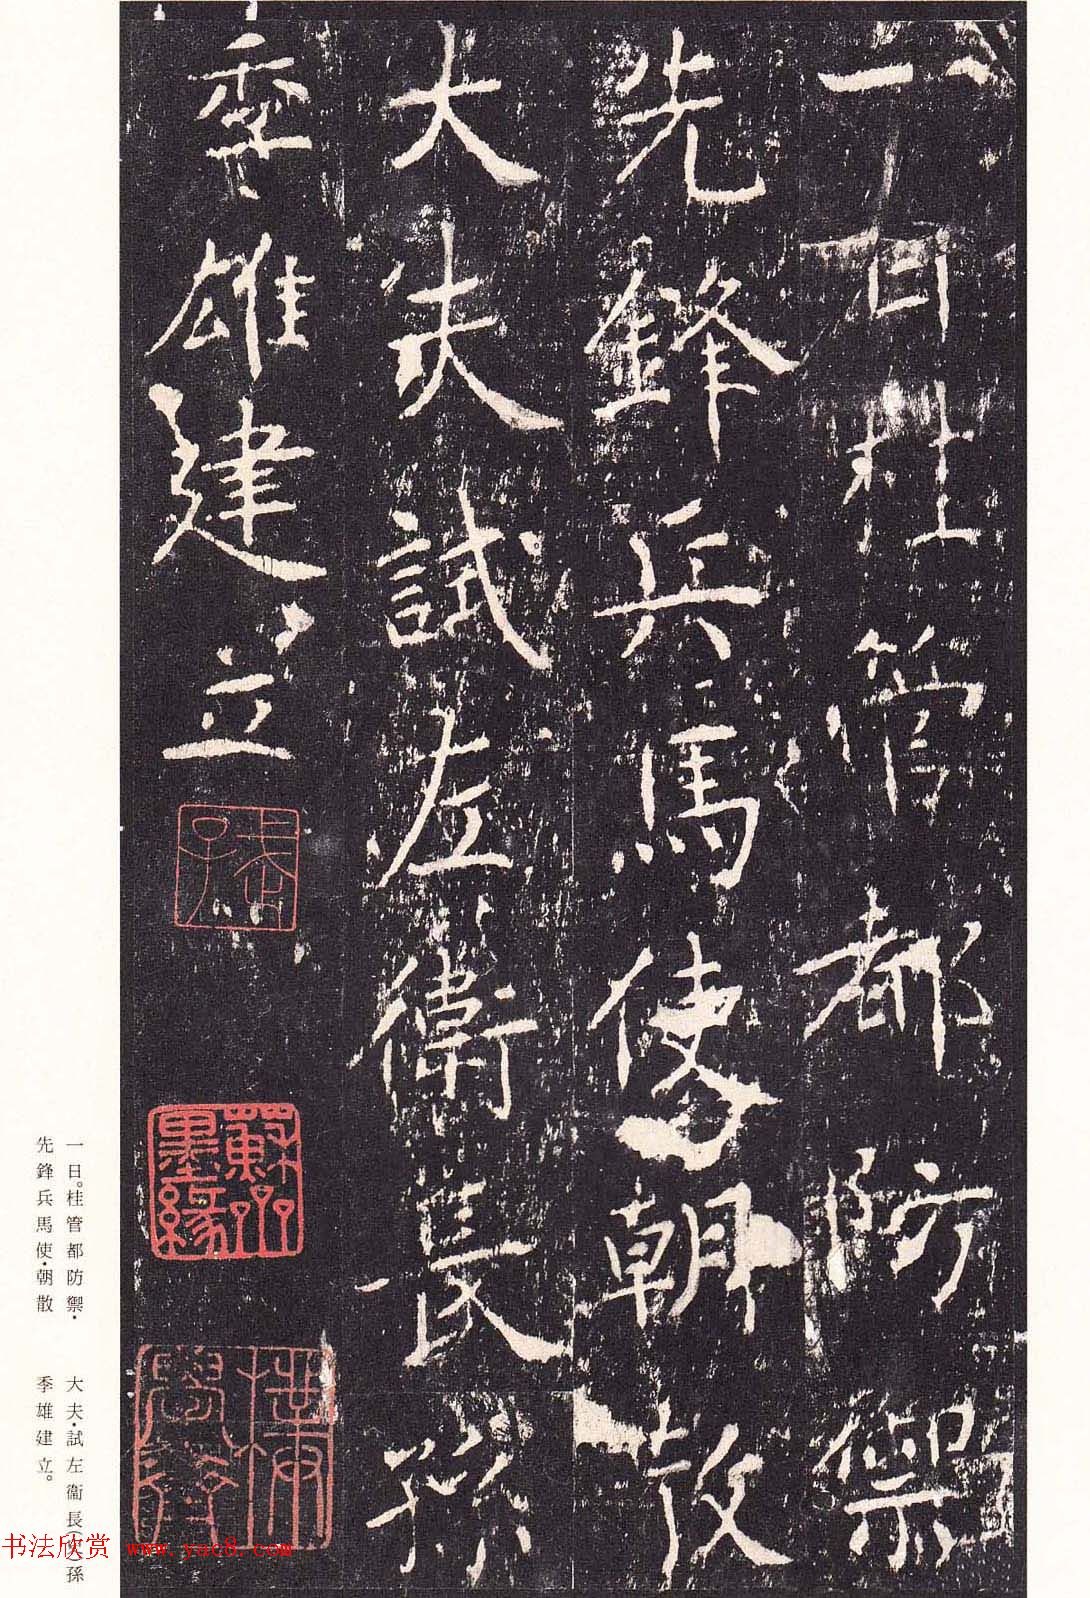 一日桂管都防禦
先鋒兵馬使朝散
大夫試左衞長孫
季雄建立
蘇齋墨緣
一日。桂管都防禦・
先鋒兵馬使・朝散
大夫・試左衞長(史)孫
季雄建立。
书法欣赏 www.yac8.com